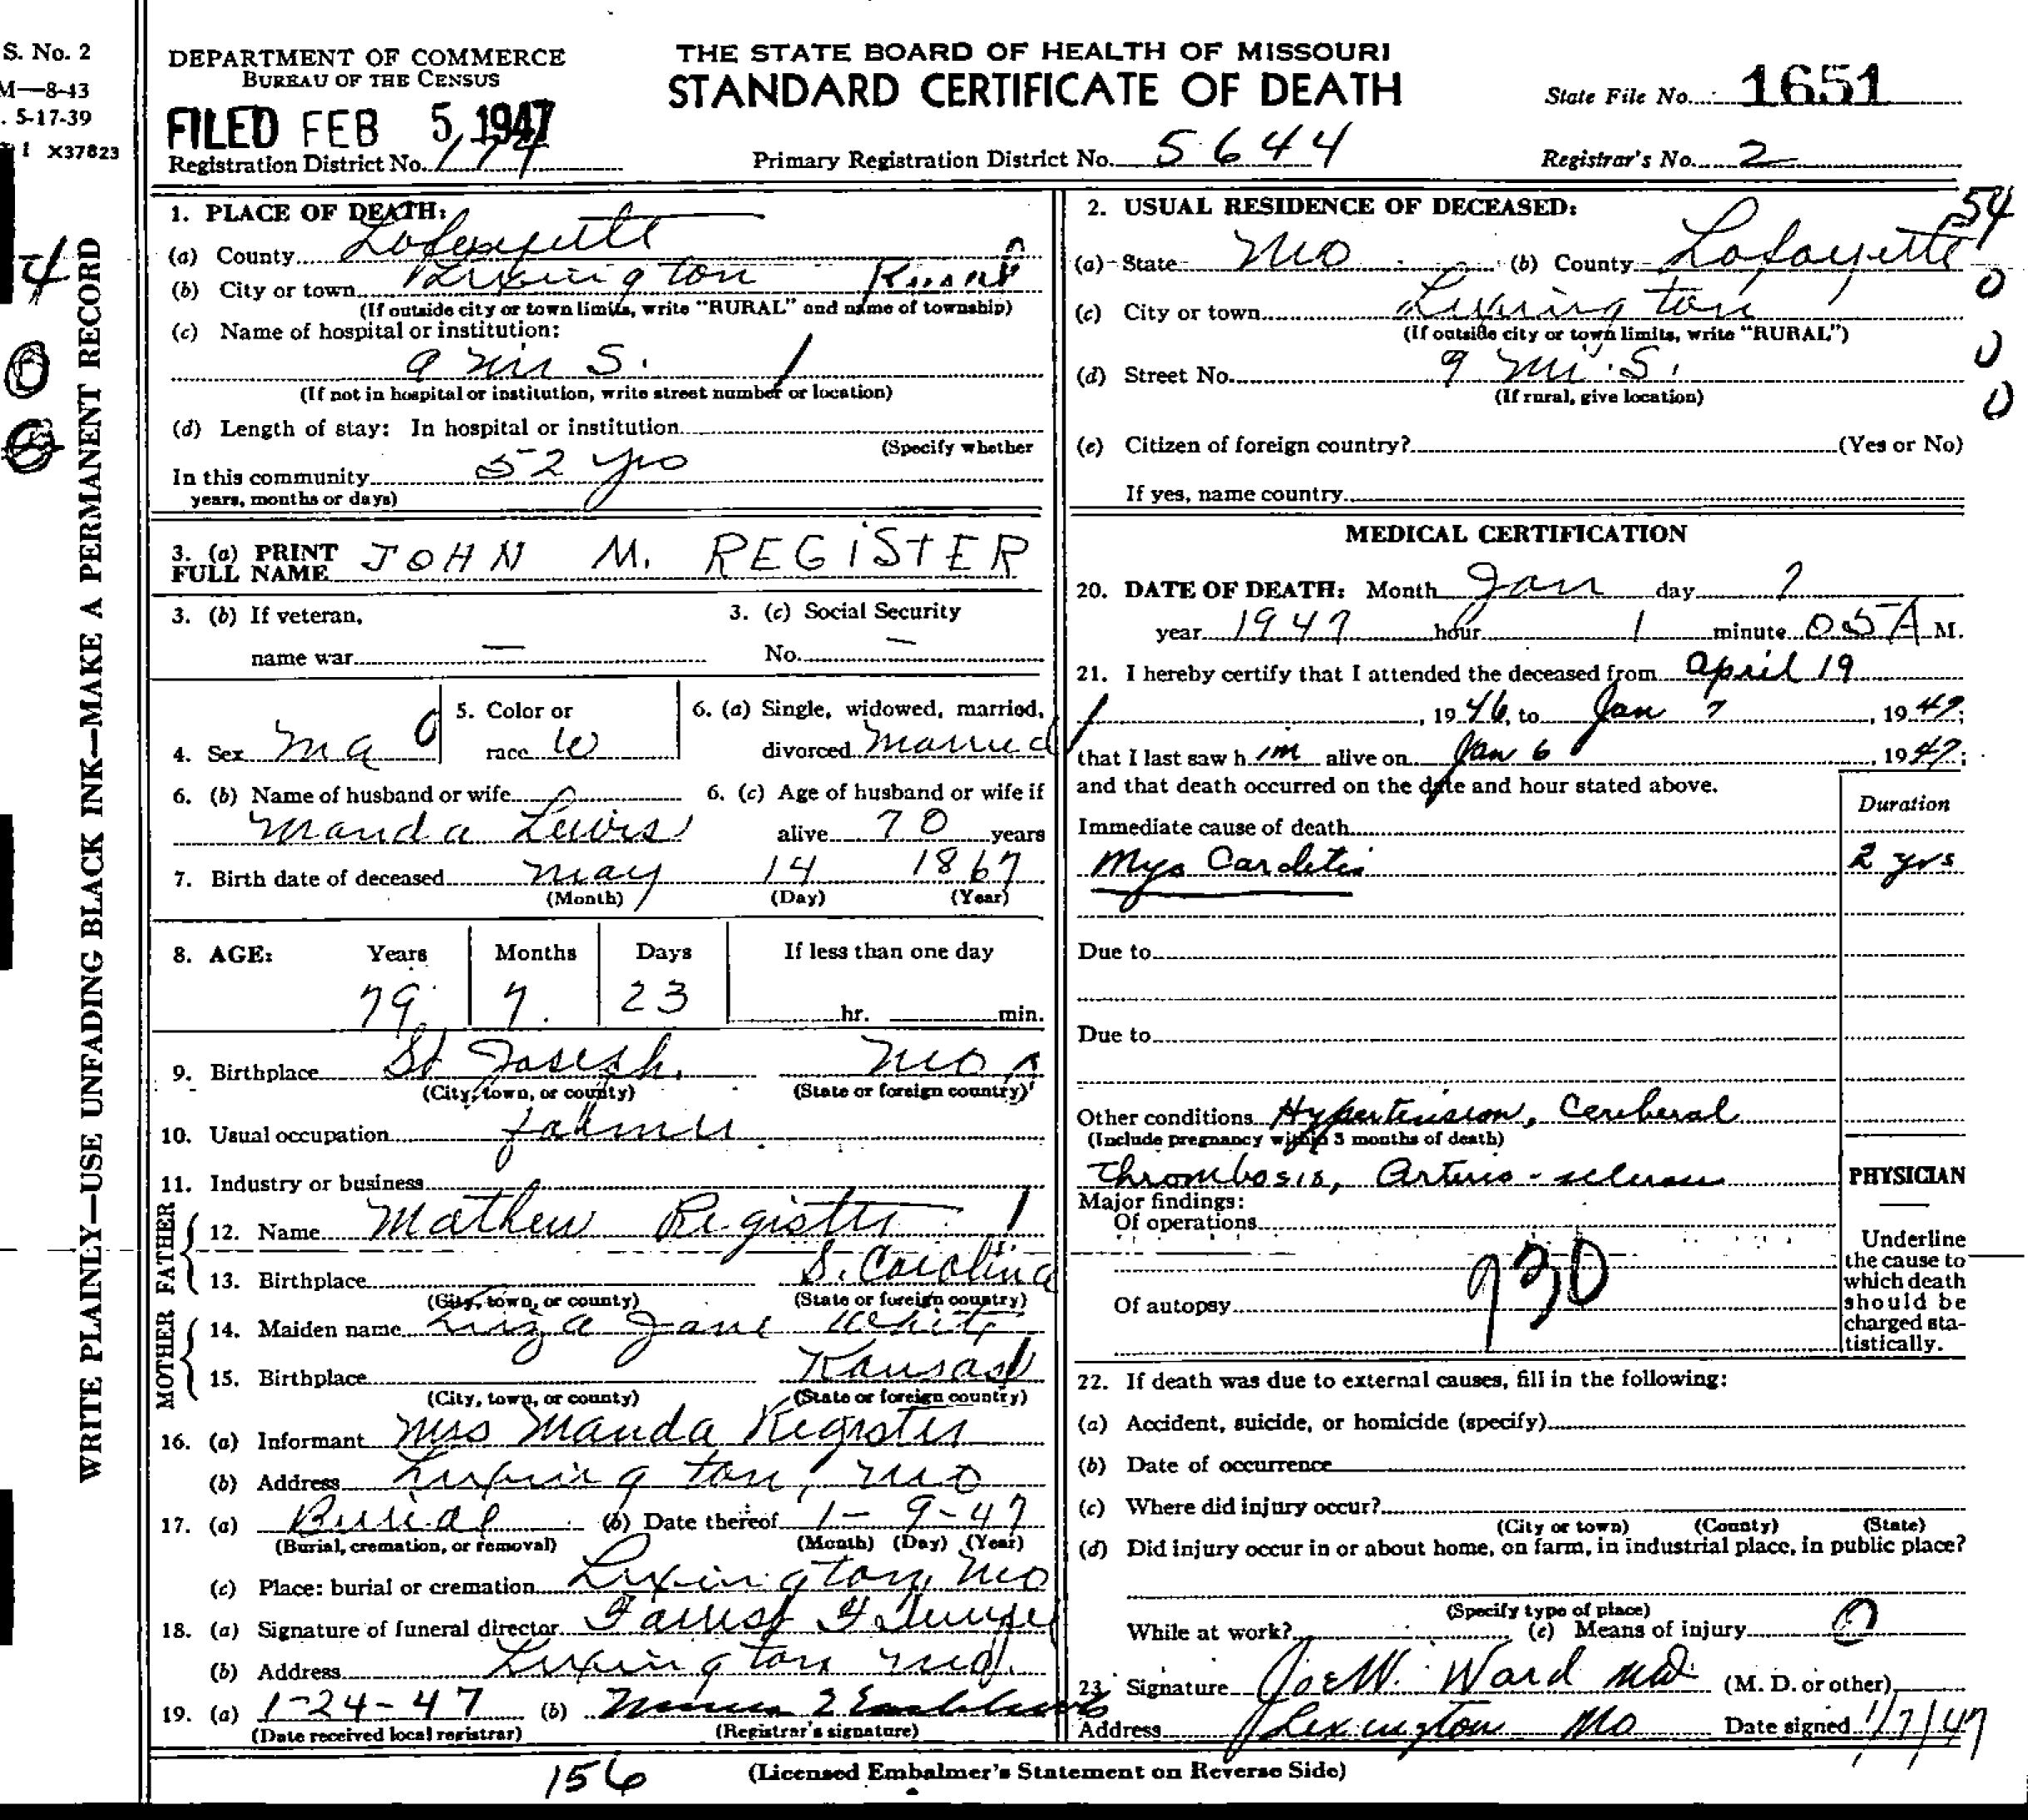 S. No. 2
M—8-43
. 5-17-39
I X37823
WRITE PLAINLY—USE UNFADING BLACK INK—MAKE A PERMANENT RECORD
DEPARTMENT OF COMMERCE
BUREAU OF THE CENSUS
THE STATE BOARD OF HEALTH OF MISSOURI
STANDARD CERTIFICATE OF DEATH
State File No. 1651
FILED FEB 5, 1947
Registration District No. 174
Primary Registration District No. 5644
Registrar's No. 2
1. PLACE OF DEATH:
(a) County Lafayette
(b) City or town Lexington Rural
(If outside city or town limits, write "RURAL" and name of township)
(c) Name of hospital or institution:
9 mi S.
(If not in hospital or institution, write street number or location)
(d) Length of stay: In hospital or institution
(Specify whether
In this community 52 yrs
years, months or days)
2. USUAL RESIDENCE OF DECEASED:
54
(a) State Mo (b) County Lafayette
0
(c) City or town Lexington
(If outside city or town limits, write "RURAL")
0
(d) Street No. 9 mi. S.
(If rural, give location)
0
(e) Citizen of foreign country? (Yes or No)
If yes, name country
3. (a) PRINT FULL NAME JOHN M. REGISTER
3. (b) If veteran,
name war —
3. (c) Social Security
No. —
4. Sex Ma
5. Color or
race W
6. (a) Single, widowed, married,
divorced Married
6. (b) Name of husband or wife
Manda Lewis
6. (c) Age of husband or wife if
alive 70 years
7. Birth date of deceased May 14 1867
(Month) (Day) (Year)
8. AGE: Years Months Days If less than one day
79 7 23 hr. min.
9. Birthplace St Joseph, Mo
(City, town, or county) (State or foreign country)
10. Usual occupation farmer
11. Industry or business
FATHER
12. Name Mathew Register
13. Birthplace S. Carolina
(City, town, or county) (State or foreign country)
MOTHER
14. Maiden name Liza Jane White
15. Birthplace Kansas
(City, town, or county) (State or foreign country)
16. (a) Informant Mrs Manda Register
(b) Address Lexington, Mo
17. (a) Burial (b) Date thereof 1-9-47
(Burial, cremation, or removal) (Month) (Day) (Year)
(c) Place: burial or cremation Lexington, Mo
18. (a) Signature of funeral director
(b) Address Lexington Mo.
19. (a) 1-24-47 (b)
(Date received local registrar) (Registrar's signature)
MEDICAL CERTIFICATION
20. DATE OF DEATH: Month Jan day 7
year 1947 hour 1 minute 05 A M.
21. I hereby certify that I attended the deceased from April 19
, 1946, to Jan 7, 1947;
that I last saw him alive on Jan 6, 1947;
and that death occurred on the date and hour stated above.
Duration
Immediate cause of death
Myo Carditis 2 yrs
Due to
Due to
Other conditions Hypertension, Cereberal
(Include pregnancy within 3 months of death)
Thrombosis, Arterio-sclerosis
PHYSICIAN
Major findings:
Of operations
93D
Of autopsy
Underline
the cause to
which death
should be
charged sta-
tistically.
22. If death was due to external causes, fill in the following:
(a) Accident, suicide, or homicide (specify)
(b) Date of occurrence
(c) Where did injury occur?
(City or town) (County) (State)
(d) Did injury occur in or about home, on farm, in industrial place, in public place?
(Specify type of place)
While at work? (e) Means of injury 0
23. Signature Joe W. Ward MD (M. D. or other)
Address Lexington Mo Date signed 1/7/47
156
(Licensed Embalmer's Statement on Reverse Side)